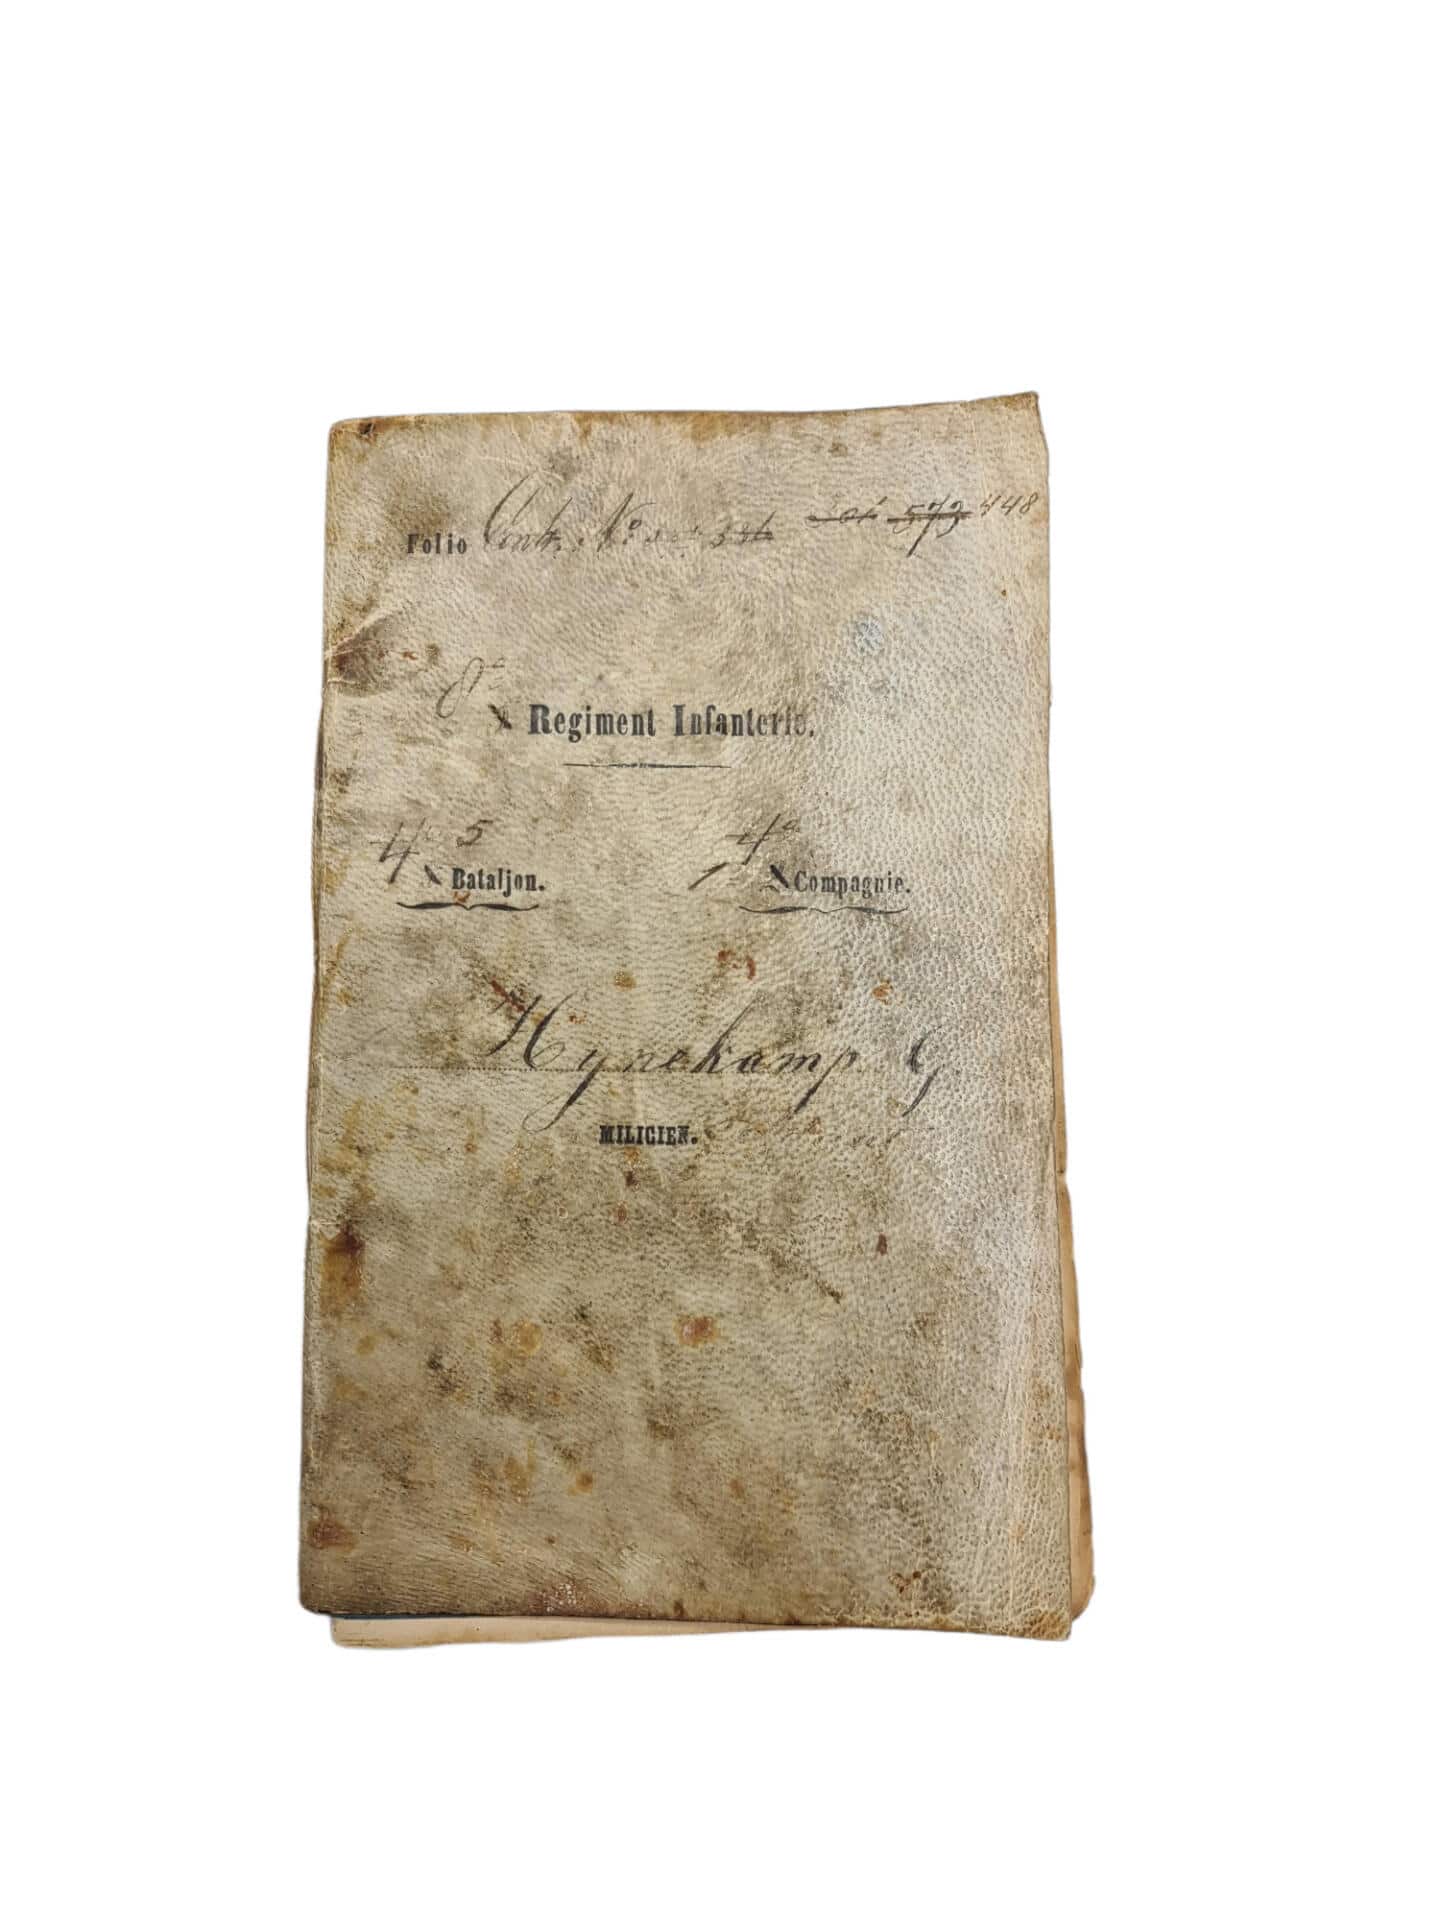 Folio Contr. No 573 448
8e Regiment Infanterie.
4e 5 Bataljon. 4e Compagnie.
Hynekamp G
MILICIEN.